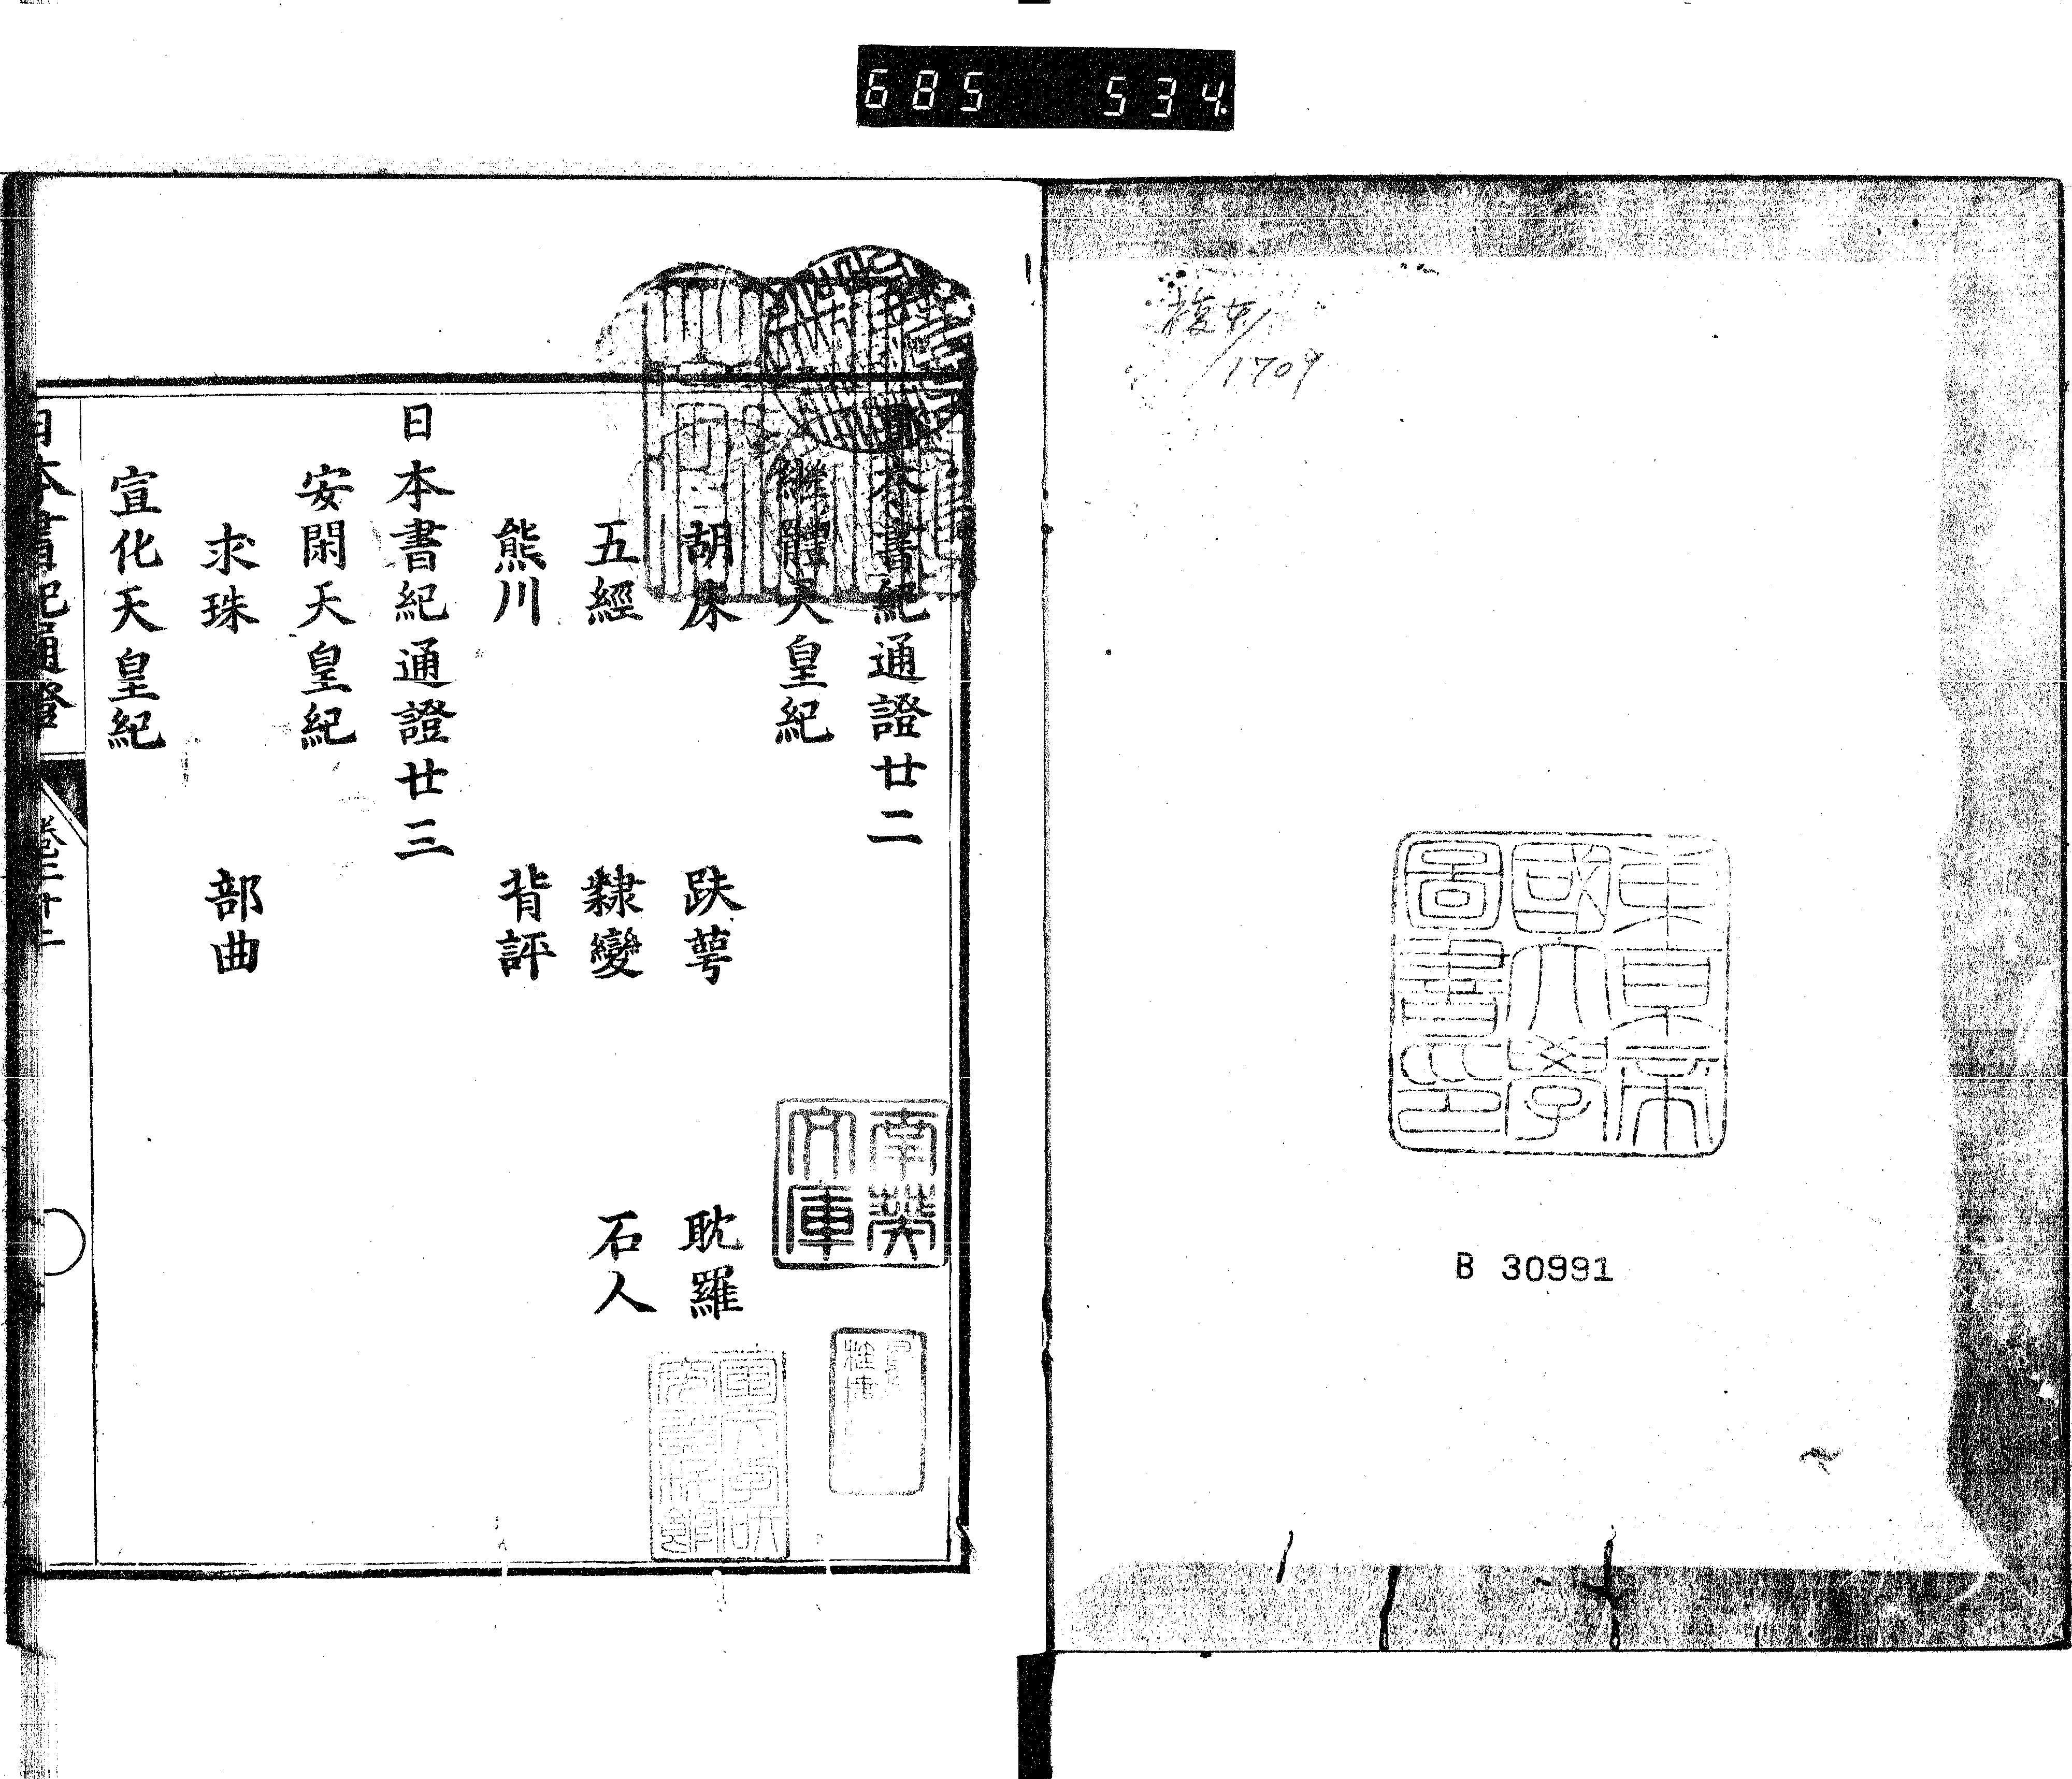 685 534
1709
東京帝
國大學
圖書印
B 30991
本書紀通證廿二
繼體天皇紀
胡床 跌萼 耽羅
五經 隸變 石人
熊川 背評
日本書紀通證廿三
安閑天皇紀
求珠 部曲
宣化天皇紀
日本書紀通證 卷二十二
南葵
文庫